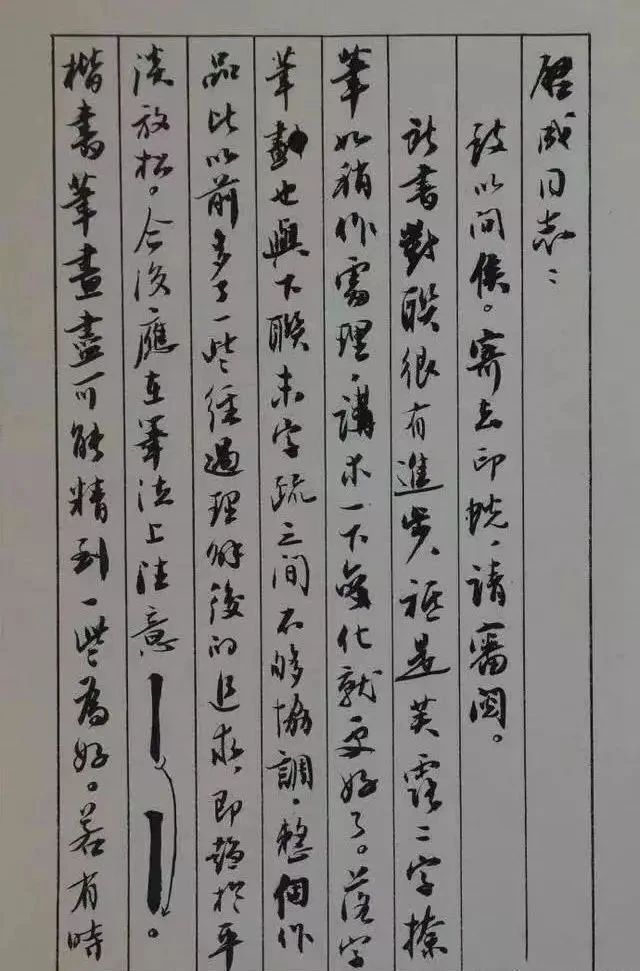 啓成同志：
致以问候。寄去印蜕，请審閲。
新書對联很有進步，祗是芙露二字捺
筆如稍作處理，講求一下變化就更好了。落字
筆動也與下联末字疏之间不够协調，整個作
品比以前多了一些经過理解後的追求，即趨於平
淡放松。今後，應在筆法上注意 。
楷書筆畫盡可能精到一些為好。若有時